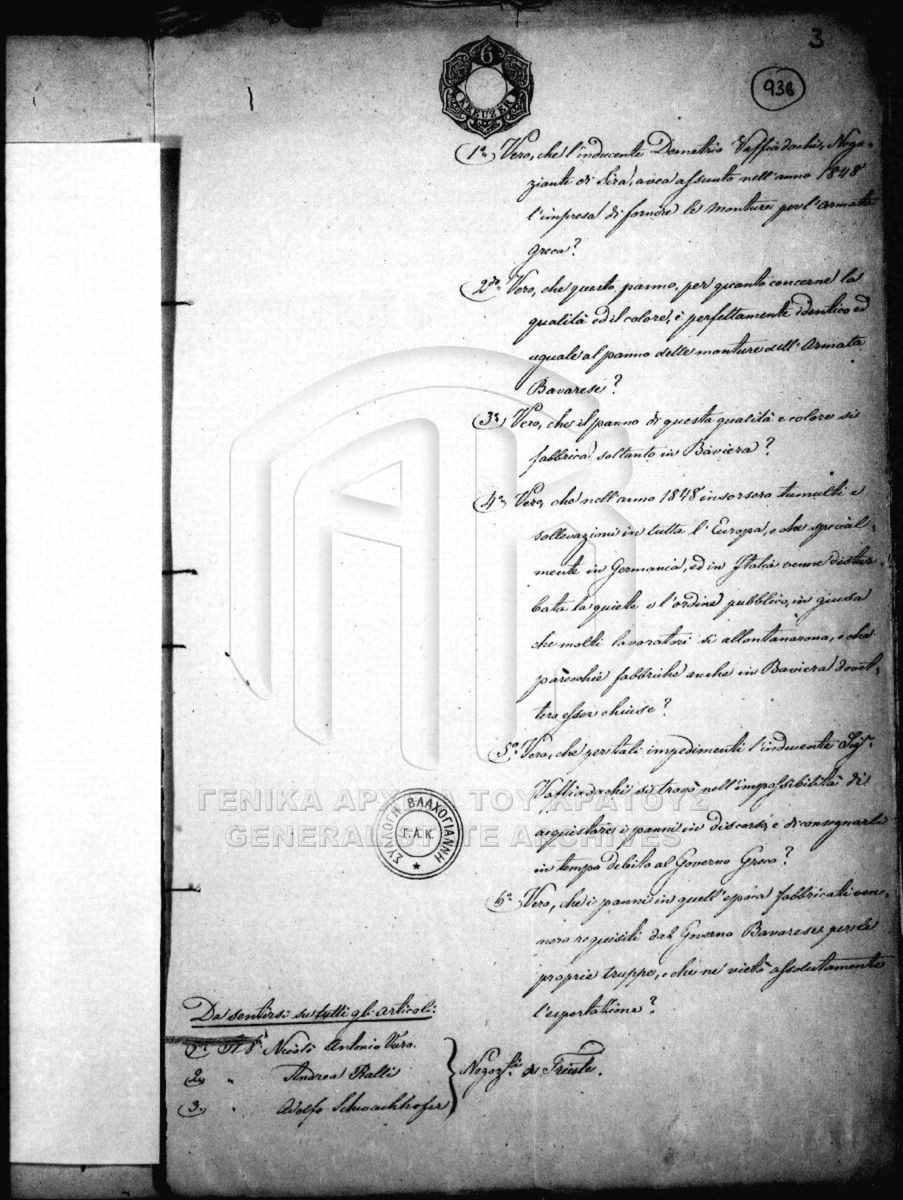 3
936
6
KREUZER
1º Vero, che l'inducente Demetrio Vaffiadachi, Nego-
ziante di Sira, avea assunto nell'anno 1848
l'impresa di fornire le monture per l'armata
greca?
2do Vero, che questo panno, per quanto concerne la
qualità ed il colore, è perfettamente identico ed
uguale al panno delle monture dell'Armata
Bavarese?
3º Vero, che il panno di questa qualità e colore si
fabbrica soltanto in Baviera?
4º Vero, che nell'anno 1848 insorsero tumulti e
sollevazioni in tutta l'Europa, e che special-
mente in Germania, ed in Italia venne distur-
bata la quiete e l'ordine pubblico, in guisa
che molti lavoratori si allontanarono, e che
parecchie fabbriche anche in Baviera dovet-
tero esser chiuse?
5º Vero, che per tali impedimenti l'inducente Sigr.
Vaffiadachi si trovò nell'impossibilità di
acquistare i panni in discorso, e di consegnarli
in tempo debito al Governo Greco?
6º Vero, che i panni in quell'epoca fabbricati ven-
nero requisiti dal Governo Bavarese per le
proprie truppe, e che ne vietò assolutamente
l'esportazione?
Da sentirsi su tutti gli articoli:
1º Il Sr Nicolò Antonio
2) " Andrea Ralli
3) " Adolfo Schwachhofer
Negozti di Trieste.
ΣΥΛΛΟΓΗ ΒΛΑΧΟΓΙΑΝΝΗ
Γ.Α.Κ.
ΓΕΝΙΚΑ ΑΡΧΕΙΑ ΤΟΥ ΚΡΑΤΟΥΣ
GENERAL STATE ARCHIVES